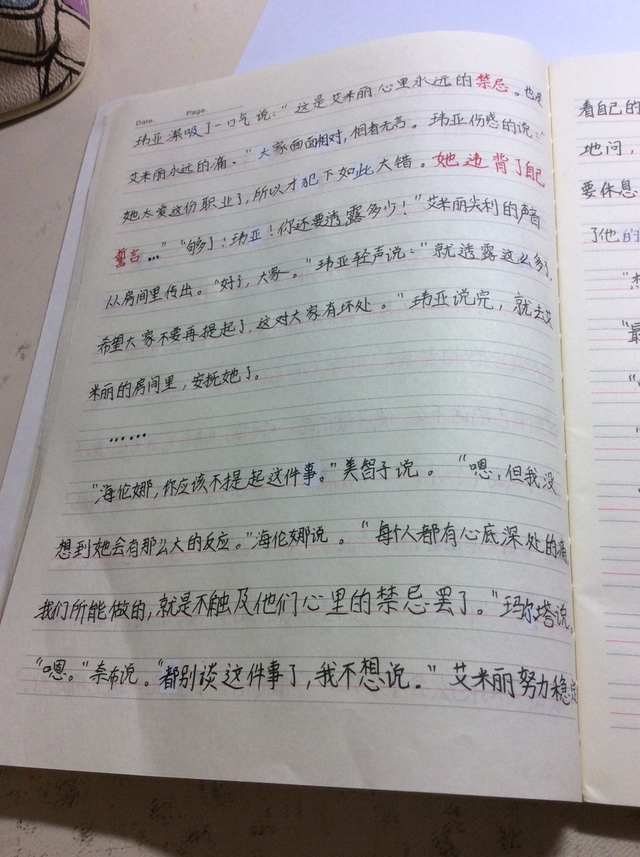 Date. Page.
玮亚深吸了一口气说:“这是艾米丽心里永远的禁忌。也是
艾米丽永远的痛。”大家面面相对,相看无言。玮亚伤感的说:“
她太爱这份职业了,所以才犯下如此大错。她违背了自己
誓言…”“够了!玮亚!你还要透露多少!”艾米丽尖利的声音
从房间里传出。“好了,大家。”玮亚轻声说:“就透露这么多了,
希望大家不要再提起了,这对大家有坏处。”玮亚说完,就去艾
米丽的房间里,安抚她了。
……
“海伦娜,你应该不提起这件事。”美智子说。“嗯,但我没
想到她会有那么大的反应。”海伦娜说。“每个人都有心底深处的痛
我们所能做的,就是不触及他们心里的禁忌罢了。”玛尔塔说。
“嗯。”奈布说。“都别谈这件事了,我不想说。”艾米丽努力稳定
看自己的
地问,
要休息
了他的
“
“最
“
“